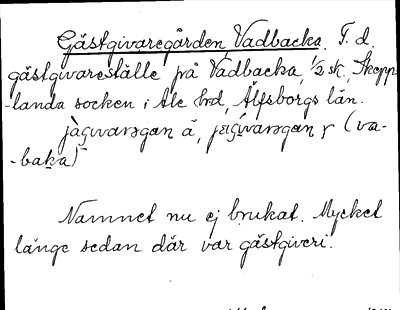 Gästgivaregården, Vadbacka. F. d.
gästgivareställe på Vadbacka, 1/2 sk, Skepp-
-landa socken i Ale hrd, Älfsborgs län.
(va-
-baka)
Namnet nu ej brukat. Mycket
länge sedan där var gästgiveri.